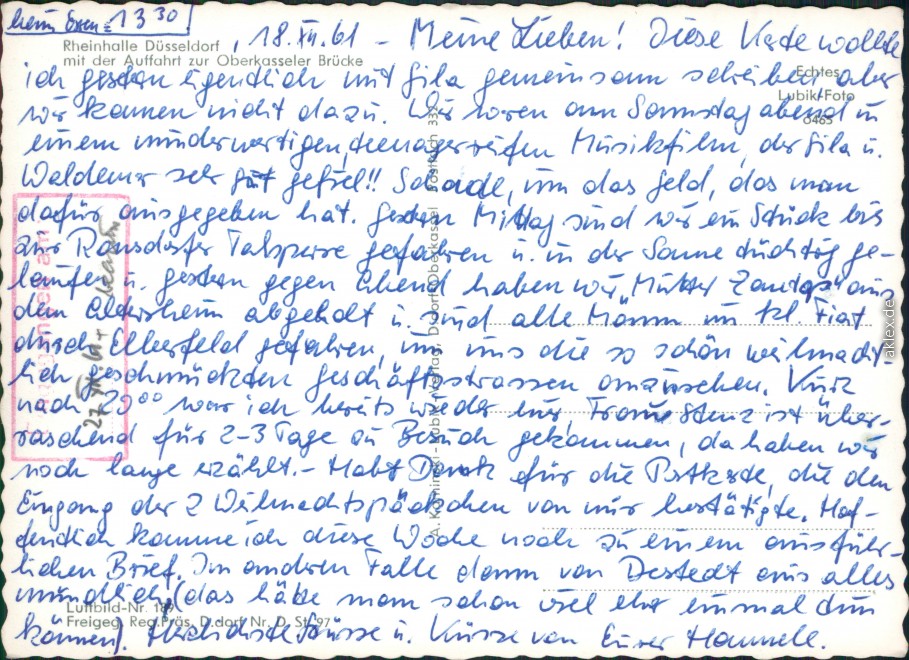 beim Essen = 13 30
Rheinhalle Düsseldorf
mit der Auffahrt zur Oberkasseler Brücke
, 18. XII. 61 – Meine Lieben! Diese Karte wollte
ich gestern eigentlich mit Gila gemeinsam schreiben, aber
Echtes
Lubik-Foto
0465
wir kamen nicht dazu. Wir waren am Samstag abend in
einem minderwertigen, teenagerreifen Musikfilm, der Gila u.
Waldemar sehr gut gefiel!! Schade, um das Geld, das man
dafür ausgegeben hat. Gestern Mittag sind wir ein Stück bis
zur Ronsdorfer Talsperre gefahren u. in der Sonne tüchtig ge-
laufen u. gestern gegen Abend haben wir "Mutter " aus
dem Altersheim abgeholt u. sind alle Mann im kl. Fiat
durch Elberfeld gefahren, um uns die so schön weihnacht-
lich geschmückten Geschäftsstrassen anzusehen. Kurz
nach 20 00 war ich bereits wieder hier, Frau Stenz ist über-
raschend für 2-3 Tage zu Besuch gekommen, da haben wir
noch lange erzählt. – Habt Dank für die Postkarte, die den
Eingang der 2 Weihnachtspäckchen von mir bestätigte. Hof-
fentlich komme ich diese Woche noch zu einem ausführ-
lichen Brief. Im anderen Falle dann von Destedt aus alles
mündlich (das hätte man schon viel eher einmal tun
können). Herzlichste Grüsse u. Küsse von Eurer Hannele.
Luftbild-Nr. 189
Freigeg. Reg. Präs. D.dorf Nr. D. St. 97
27. XII. 61
aklex.de